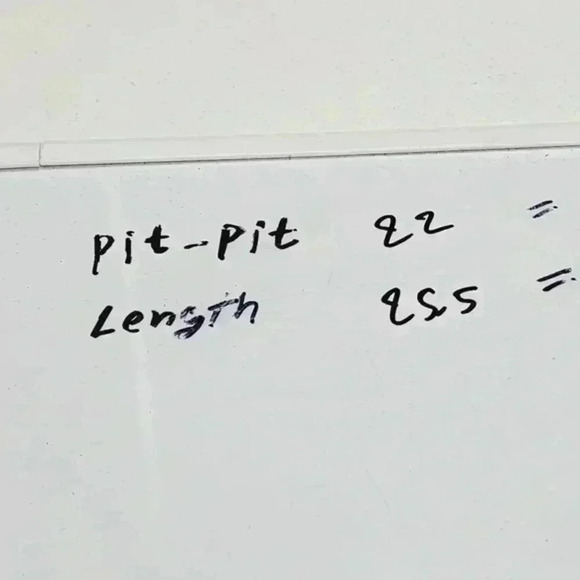 Pit-Pit 22 "
Length 25.5 "